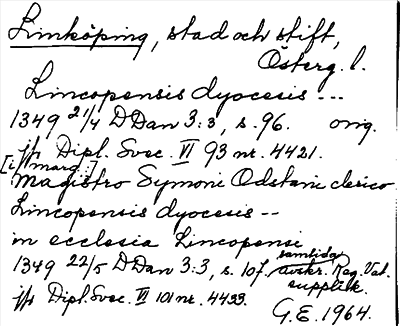 Linköping, stad och stift,
Österg. l.
Lincopensis dyocesis ---
1349 21/4 DDan 3:3, s. 96. orig.
jfr Dipl. Svec. VI 93 nr. 4421.
[i marg.:]
Magistro Symoni Odstani clerico
Lincopensis dyocesis --
in ecclesia Lincopensi
samtida
1349 22/5 DDan 3:3, s. 107. avskr. Reg. Vat.
supplik.
jfr Dipl. Svec. VI 101 nr. 4433.
G.E. 1964.